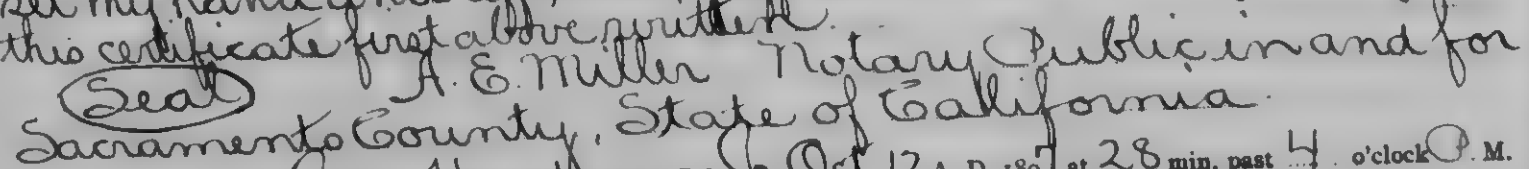 set my hand
this certificate first above written.
(Seal) A. E. Miller Notary Public in and for
Sacramento County, State of California.
Oct 12 A. D. 1897 at 28 min. past 4 o'clock P. M.